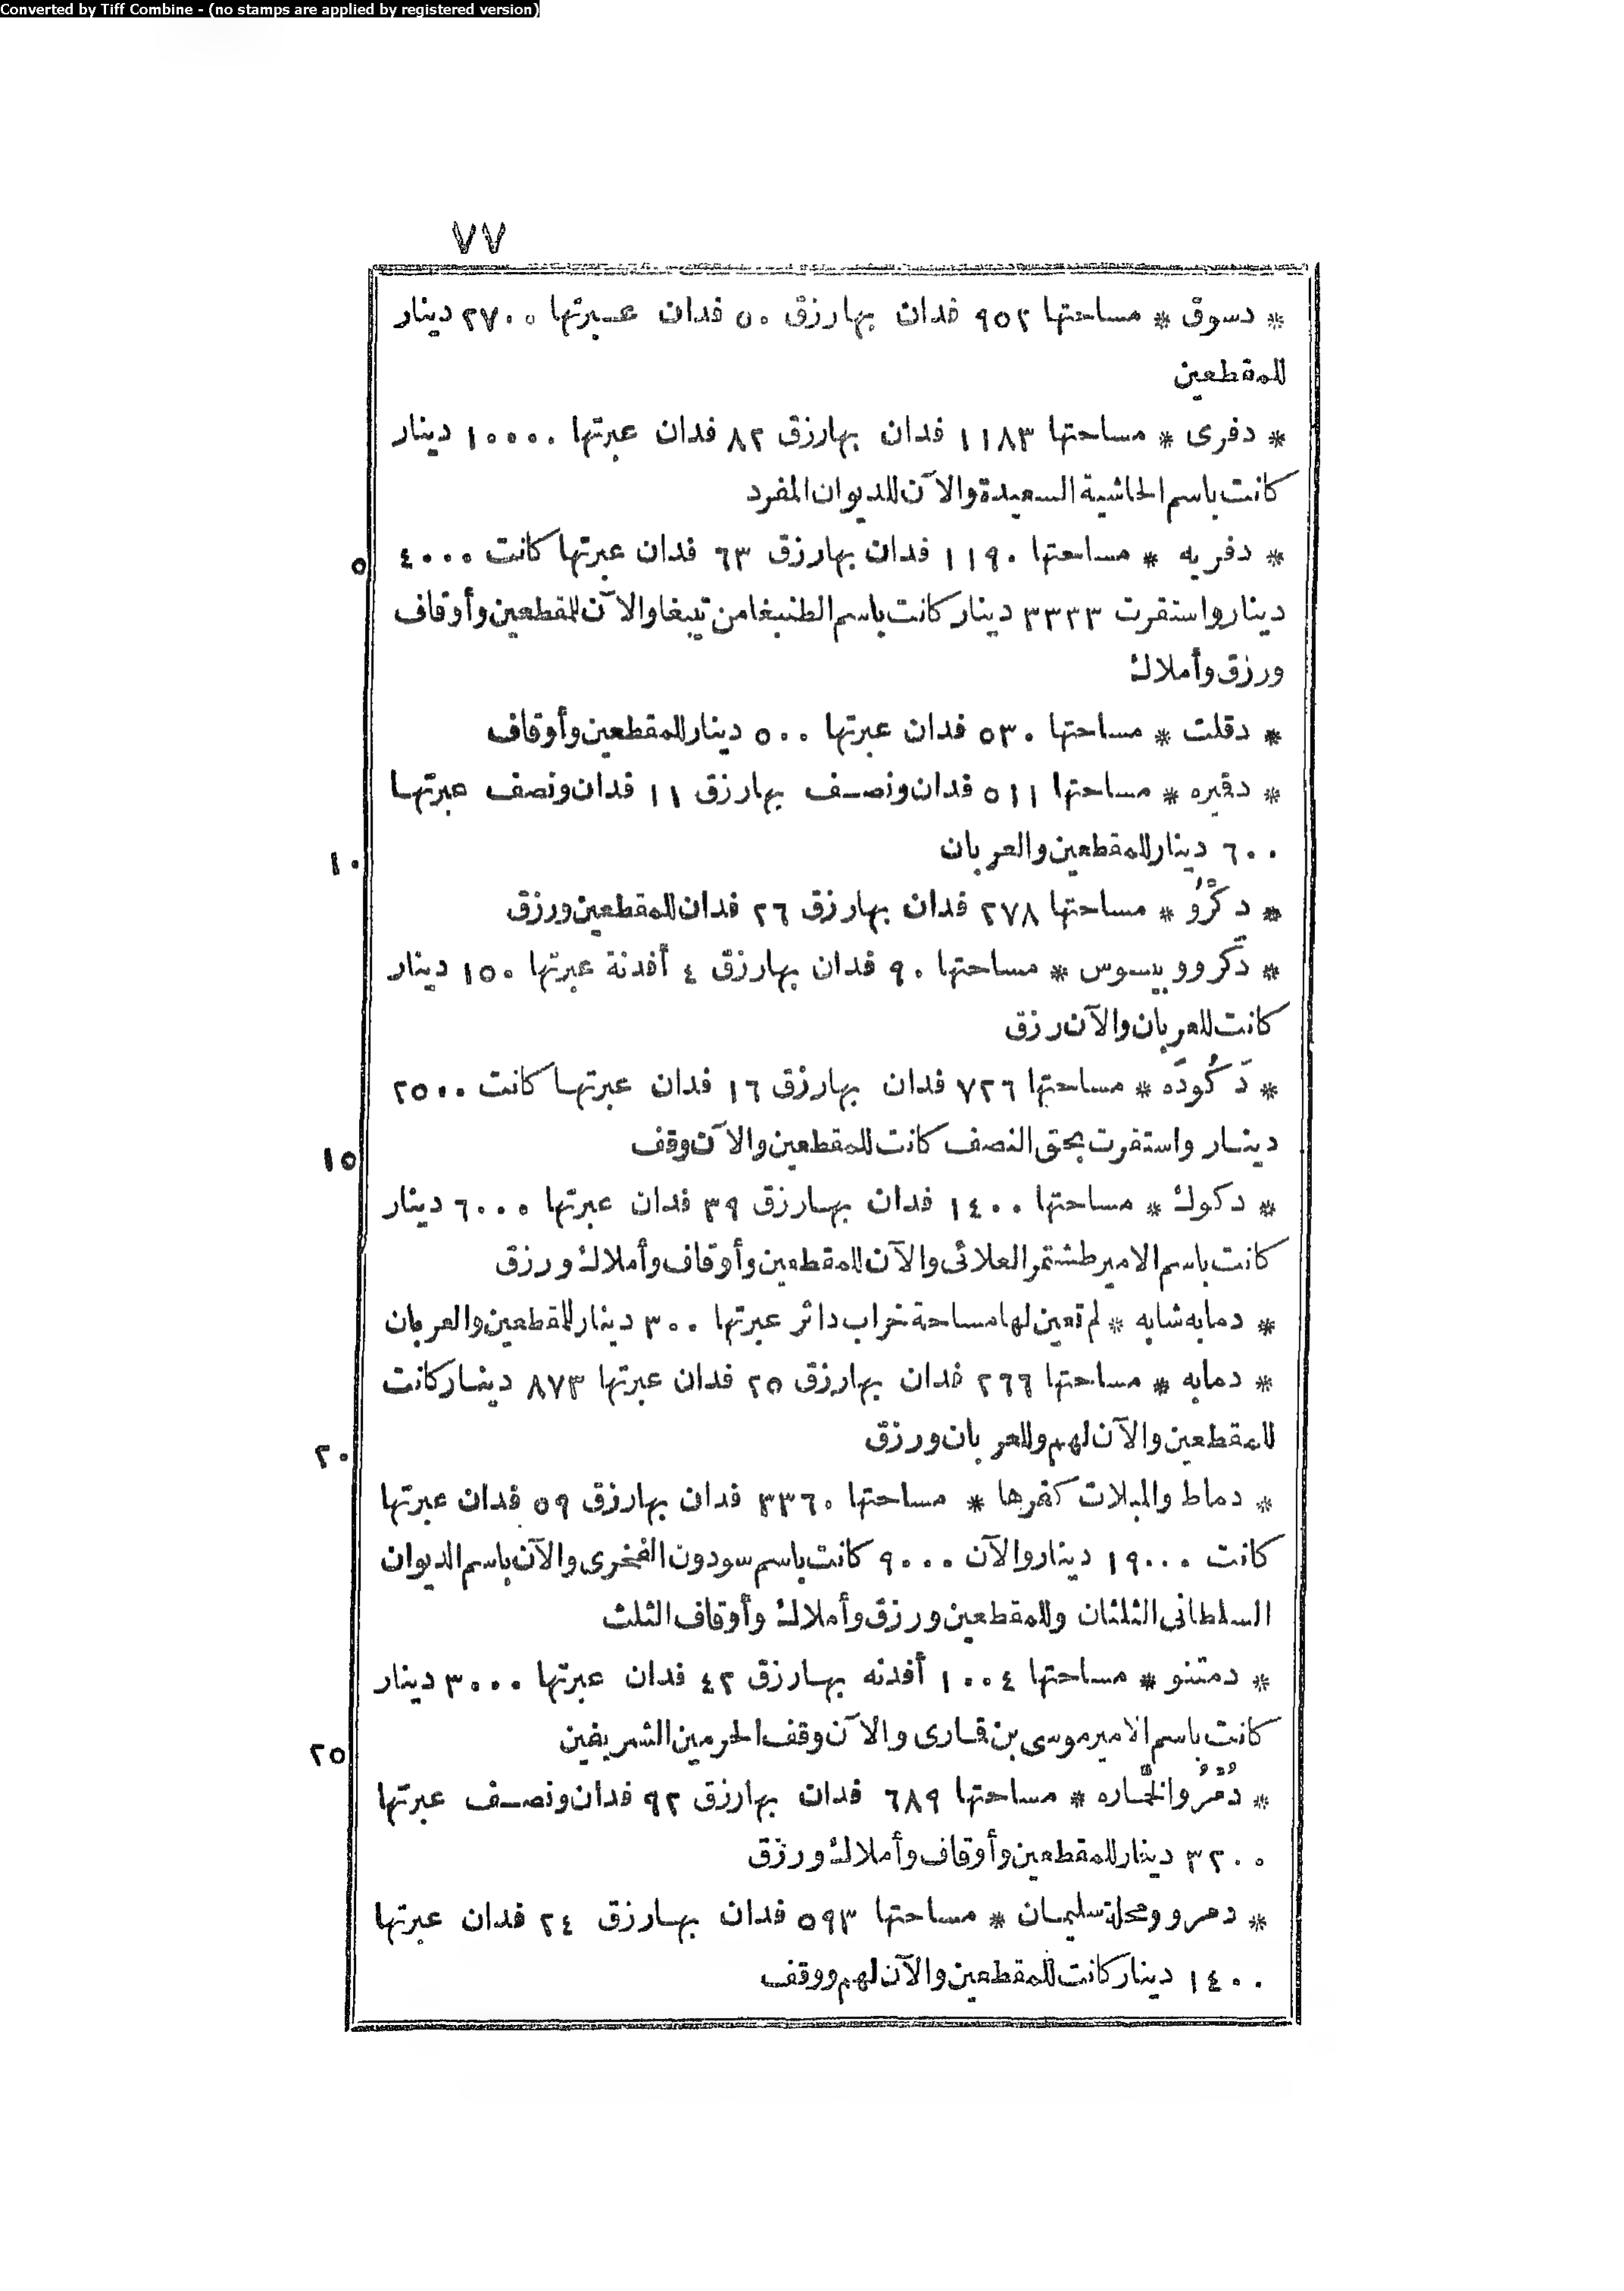 Converted by Tiff Combine - (no stamps are applied by registered version)
٧٧
* دسوق * مساحتها ٩٥٢ فدان بها رزق ٥٠ فدان عبرتها ٢٧٠٠ دينار
للمقطعين
* دفرى * مساحتها ١١٨٣ فدان بها رزق ٨٢ فدان عبرتها ١٠٠٠٠ دينار
كانت باسم الحاشية السعيدة والآن للديوان المفرد
* دفريه * مساحتها ١١٩٠ فدان بها رزق ٦٣ فدان عبرتها كانت ٤٠٠٠
٥
دينار واستقرت ٣٣٣٣ دينار كانت باسم الطنبغا من تيبغا والآن للمقطعين وأوقاف
ورزق وأملاك
* دقلت * مساحتها ٥٣٠ فدان عبرتها ٥٠٠ دينار للمقطعين وأوقاف
* دقيره * مساحتها ٥١١ فدان ونصف بها رزق ١١ فدان ونصف عبرتها
٦٠٠ دينار للمقطعين والعربان
١٠
* دكرو * مساحتها ٢٧٨ فدان بها رزق ٢٦ فدان للمقطعين ورزق
* دكرو وبيسوس * مساحتها ٩٠ فدان بها رزق ٤ أفدنة عبرتها ١٥٠ دينار
كانت للعربان والآن رزق
* دَكُودَه * مساحتها ٧٢٦ فدان بها رزق ١٦ فدان عبرتها كانت ٢٥٠٠
دينار واستقرت بحق النصف كانت للمقطعين والآن وقف
١٥
* دكوك * مساحتها ١٤٠٠ فدان بها رزق ٣٩ فدان عبرتها ٦٠٠٠ دينار
كانت باسم الامير طشتمر العلائى والآن للمقطعين وأوقاف وأملاك ورزق
* دمابه شابه * لم تعين لها مساحة خراب داثر عبرتها ٣٠٠ دينار للمقطعين والعربان
* دمابه * مساحتها ٢٦٦ فدان بها رزق ٢٥ فدان عبرتها ٨٧٣ دينار كانت
للمقطعين والآن لهم وللعربان ورزق
٢٠
* دماط والمبلات كفرها * مساحتها ٣٣٦٠ فدان بها رزق ٥٩ فدان عبرتها
كانت ١٩٠٠٠ دينار والآن ٩٠٠٠ كانت باسم سودون الفخرى والآن باسم الديوان
السلطانى الثلثان وللمقطعين ورزق وأملاك وأوقاف الثلث
* دمتنو * مساحتها ١٠٠٤ أفدنه بها رزق ٤٢ فدان عبرتها ٣٠٠٠ دينار
كانت باسم الامير موسى بن قمارى والآن وقف الحرمين الشريفين
٢٥
* دُمْرُو الخمّاره * مساحتها ٦٨٩ فدان بها رزق ٩٢ فدان ونصف عبرتها
٣٢٠٠ دينار للمقطعين وأوقاف وأملاك ورزق
* دمرو ومحلة سليمان * مساحتها ٥٩٣ فدان بها رزق ٢٤ فدان عبرتها
١٤٠٠ دينار كانت للمقطعين والآن لهم ووقف